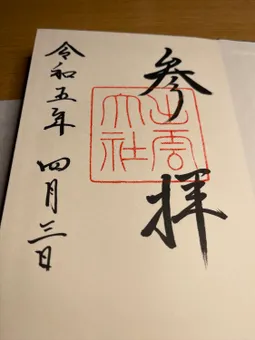 参拝
出雲大社
令和五年 四月三日